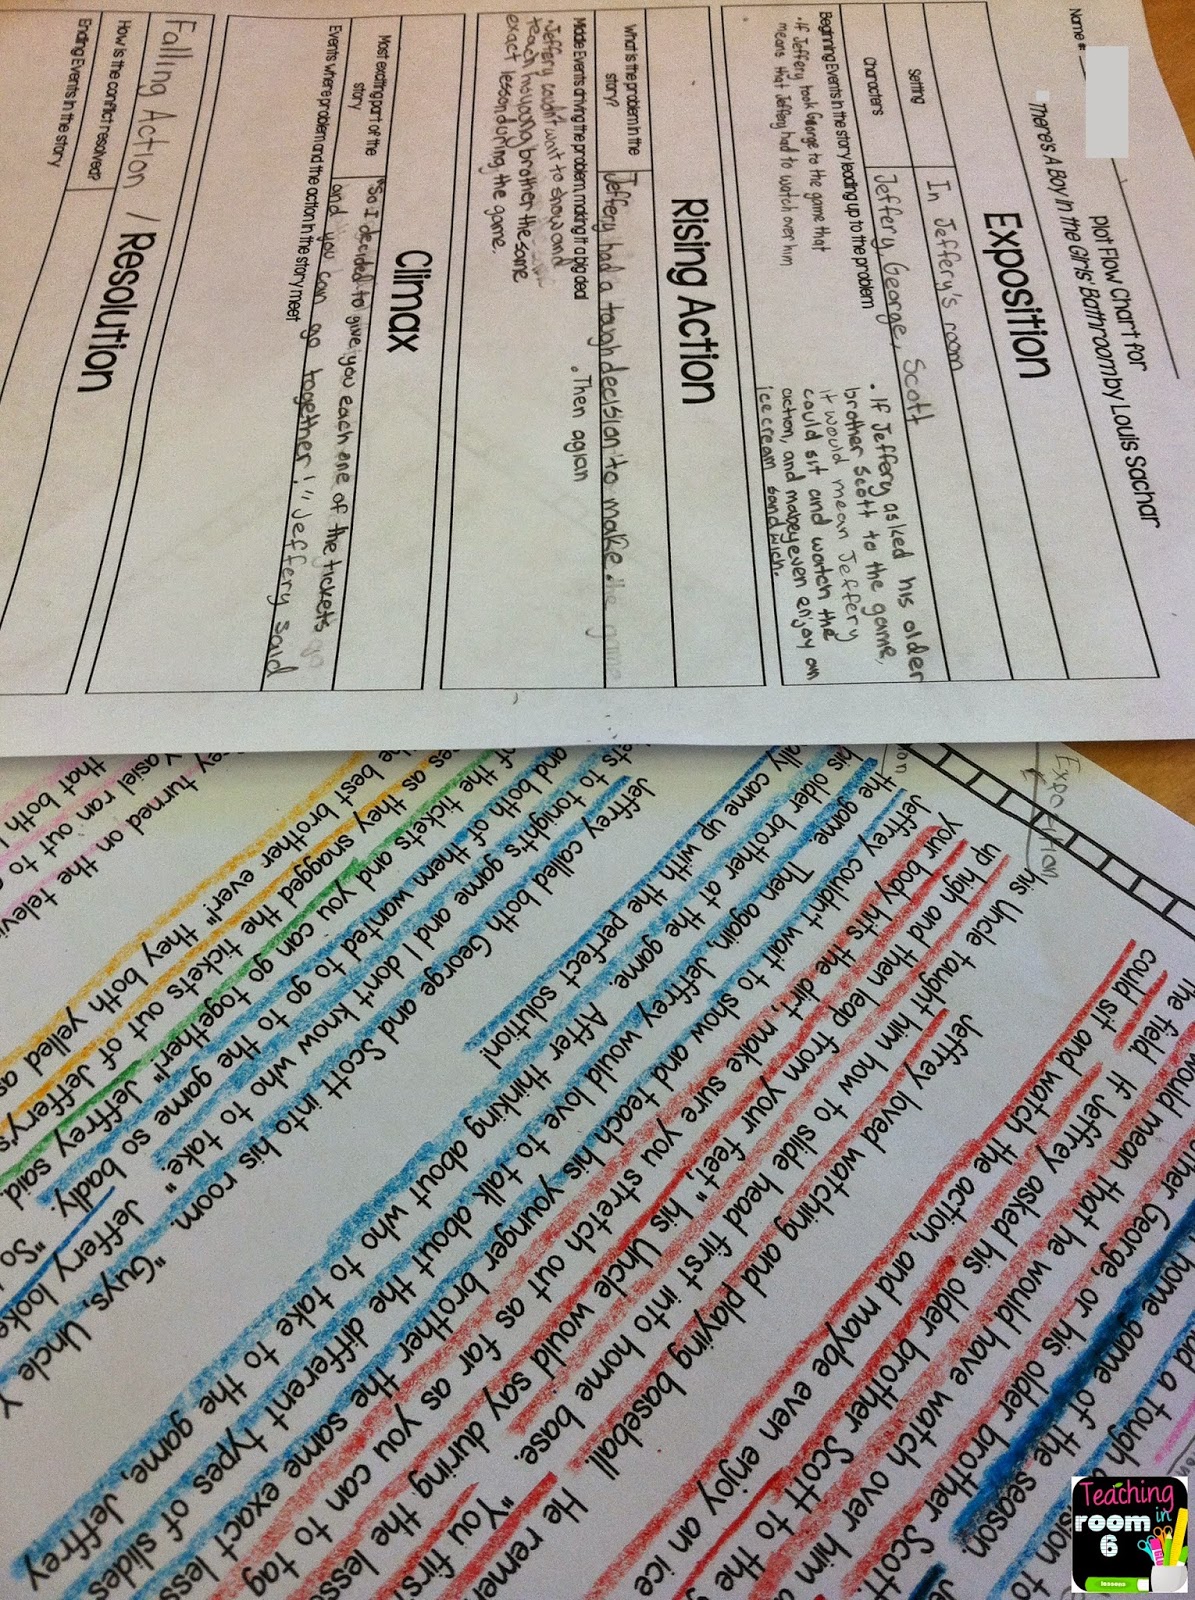 Name #:
Plot Flow Chart for
There's A Boy in the Girls' Bathroom by Louis Sachar
Exposition
Setting
In Jeffery's room
Characters
Jeffery, George, Scott
Beginning Events in the story leading up to the problem
• If Jeffery took George to the game that
means that Jeffery had to watch over him
• If Jeffery asked his older
brother Scott to the game,
it would mean Jeffery
could sit and watch the
action, and mabey even enjoy an
ice cream sandwich.
Rising Action
What is the problem in the
story?
Jeffery had a tough decision to make.
Middle Events driving the problem, making it a big deal
• Jeffery couldn't wait to show and
teach his young brother the same
exact lesson during the game.
• Then agian
Climax
Most exciting part of the
story
"So I decided to give you each one of the tickets
and you can go together!" Jeffery said
Events where problem and the action in the story meet
Falling Action / Resolution
How is the conflict resolved?
Ending Events in the story
Exposition
the field.
could sit and watch the action, and maybe even enjoy an ice
If Jeffrey asked his older brother Scott to the
would mean that he would have watch over him
George, or his older brother Scott.
home game of the season
Jeffrey loved watching and playing baseball. He
his Uncle taught him how to slide head first into home base. "You
up high and then leap from your feet," his Uncle would say during the
your body hits the dirt, make sure you stretch out as far as you can to tag
Jeffrey couldn't wait to show and teach his younger brother the same exact
the game. Then again, Jeffrey would love to talk about the different types of slides
his older brother at the game. After thinking about who to take to the game, Jeffrey
come up with the perfect solution!
Jeffrey called both George and Scott into his room. "Guys, Uncle
to tonight's game and I don't know who to take." Jeffery
and both of them wanted to go to the game so badly. "So
the tickets and you can go together!" Jeffrey said.
as they snagged the tickets out of Jeffery's
the best brother ever!" they both yelled as
turned on the
ran out to
that both
Teaching
in
room
6
lessons